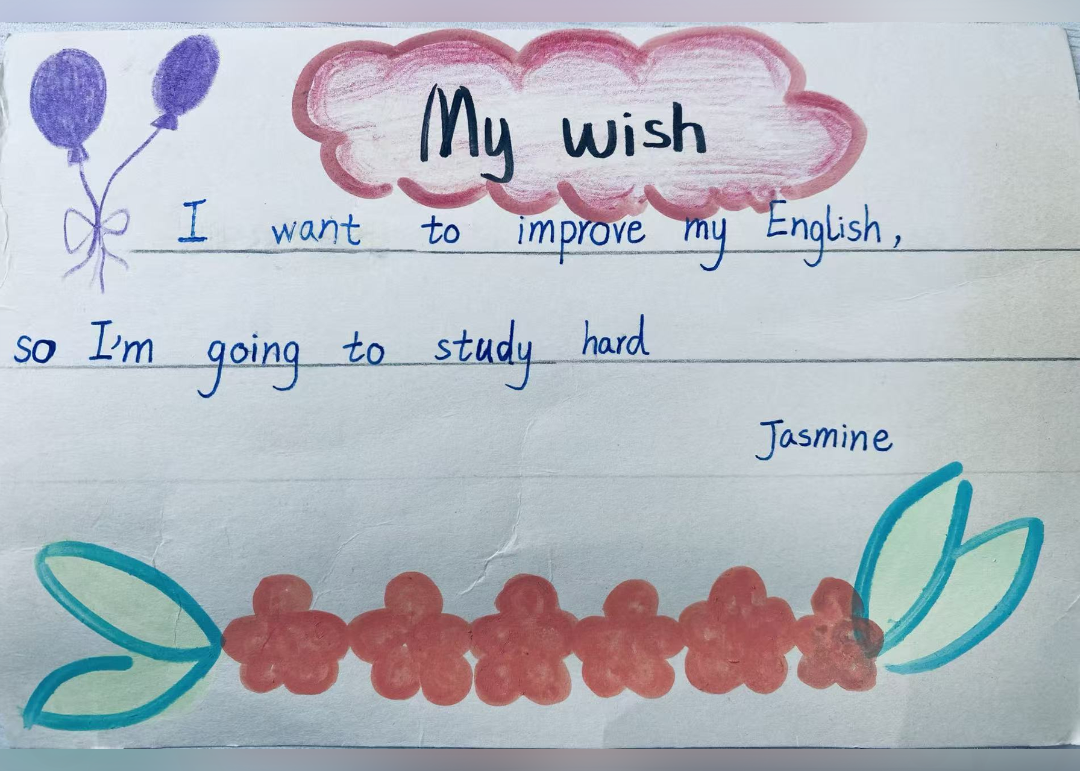 My wish
I want to improve my English,
so I'm going to study hard
Jasmine